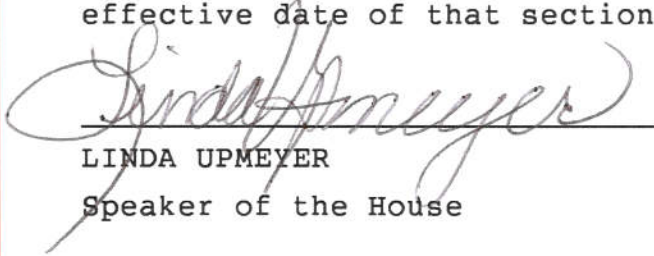 effective date of that section
Linda Upmeyer
LINDA UPMEYER
Speaker of the House